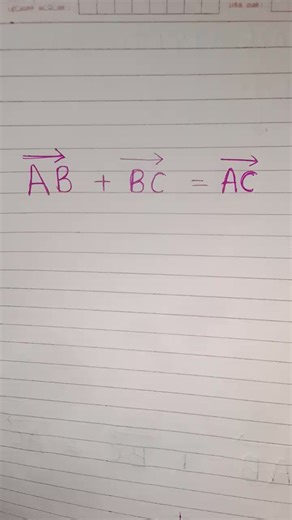 $\overrightarrow{AB} + \overrightarrow{BC} = \overrightarrow{AC}$